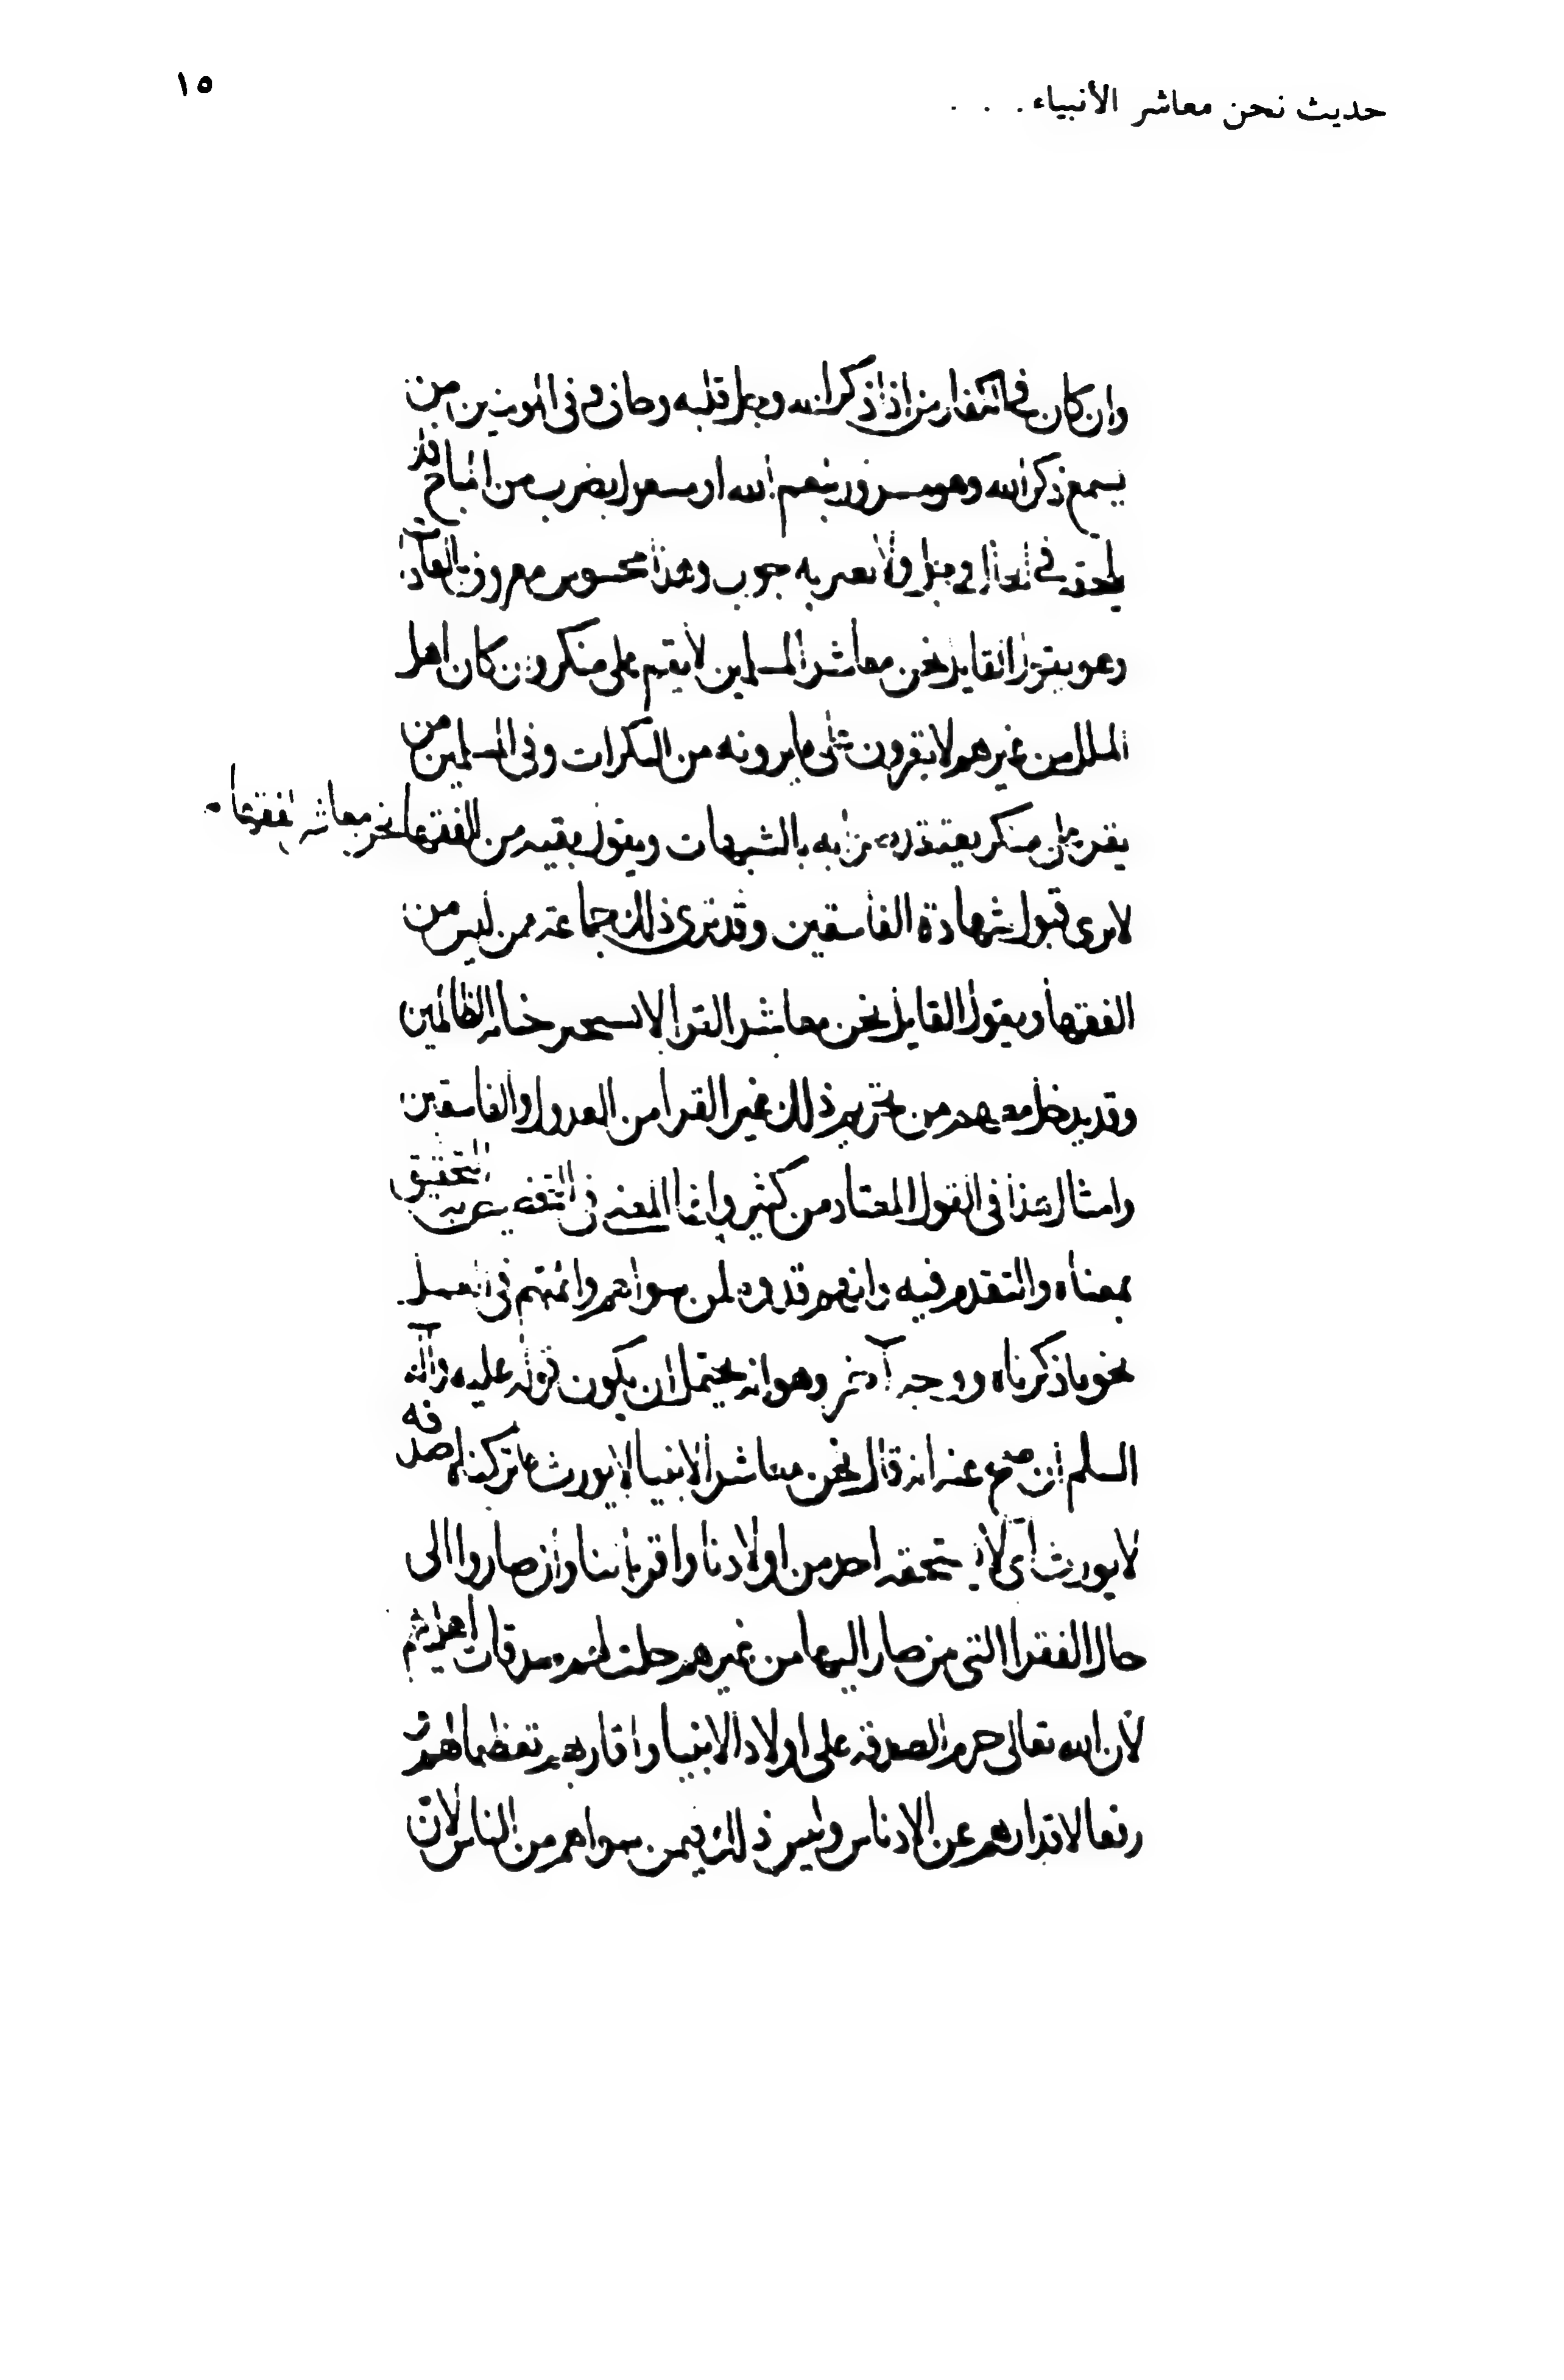 حديث نحن معاشر الأنبياء . . .
١٥
وان كان في الكفار من اذا ذكر الله وجل قلبه وخاف وفي المومنين من
يسمع ذكر الله وهو مسرور بنعم الله او مشغول بضرب من المباح فلا
يلحقه في الحال وجل ولا يعتريه خوف وهذا محسوس معروف بالعادات
وهو يقول القايل نحن معاشر المسلمين لا نقيم على منكر وان كان اهل
الملل من غيرهم لا يقرون على ما يرونه من المنكرات وفي المسلمين من
يقر على منكر يعتقده بالشبهات ويقول فقيه من الفقها نحن معاشر الفقها
لا نرى قبول شهادة الفاسقين وقد يرى ذلك جماعة ممن ليس من
الفقها ويقول القايل نحن معاشر القرا لا نستجيز خيانه الظالمين
وقد يدخل معهم من يحرم ذلك غير القرا من العدول والفاسقين
وامثال هذا في القول المعتاد من كثير وانما المعنى في التحقيق
بمعناه والتقدم فيه وانهم قدوه لمن سواهم وائمتهم في العمل
نحو ما ذكرناه ووجه آخر وهو انه يحتمل ان يكون قوله عليه وآله
السلم ان صح عنه انه قال نحن معاشر الانبيا لا نورث ما تركناه صدقه
لا يورث اى لا يستحقه احد من اولادنا واقربائنا وان صاروا الى
حال الفقرا التى من صار اليها من غيرهم حلت لهم صدقات اهليهم
لان الله تعالى حرم الصدقة على اولاد الانبيا واقاربهم تعظيما لهم و
رفعا لاقدارهم عن الادناس وليس ذلك فيمن سواهم من الناس لان